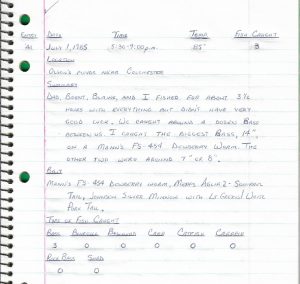 Entry Date Time Temp Fish Caught
A1 July 1, 1985 5:30-9:00 p.m. 85° 3
Location
Olson's ponds near Colchester
Summary
Dad, Brent, Blaine, and I fished for about 3 1/2
hours with everything but didn't have very
good luck. We caught around a dozen bass
between us. I caught the biggest bass, 14",
on a Mann's PS-454 Dewberry Worm. The
other two were around 7" or 8".
Bait
Mann's PS-454 Dewberry worm, Mepps Aglia 2 - Squirrel
Tail, Johnson Silver Minnow with Lt Green White
Pork Tail.
Type of Fish Caught
Bass Bluegill Bullhead Carp Catfish Crappie
3 0 0 0 0 0
Rock Bass Sund
0 0